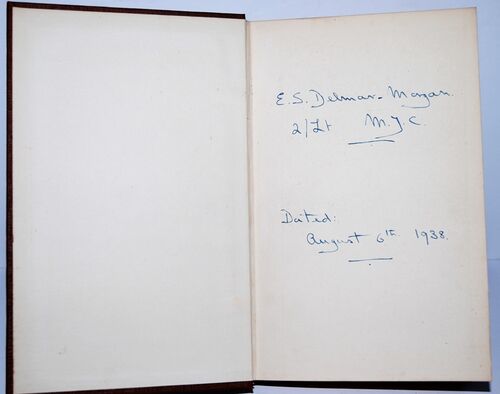 E. S. Delmar-Morgan.
2/Lt M.T.C.
Dated:
August 6th 1938.